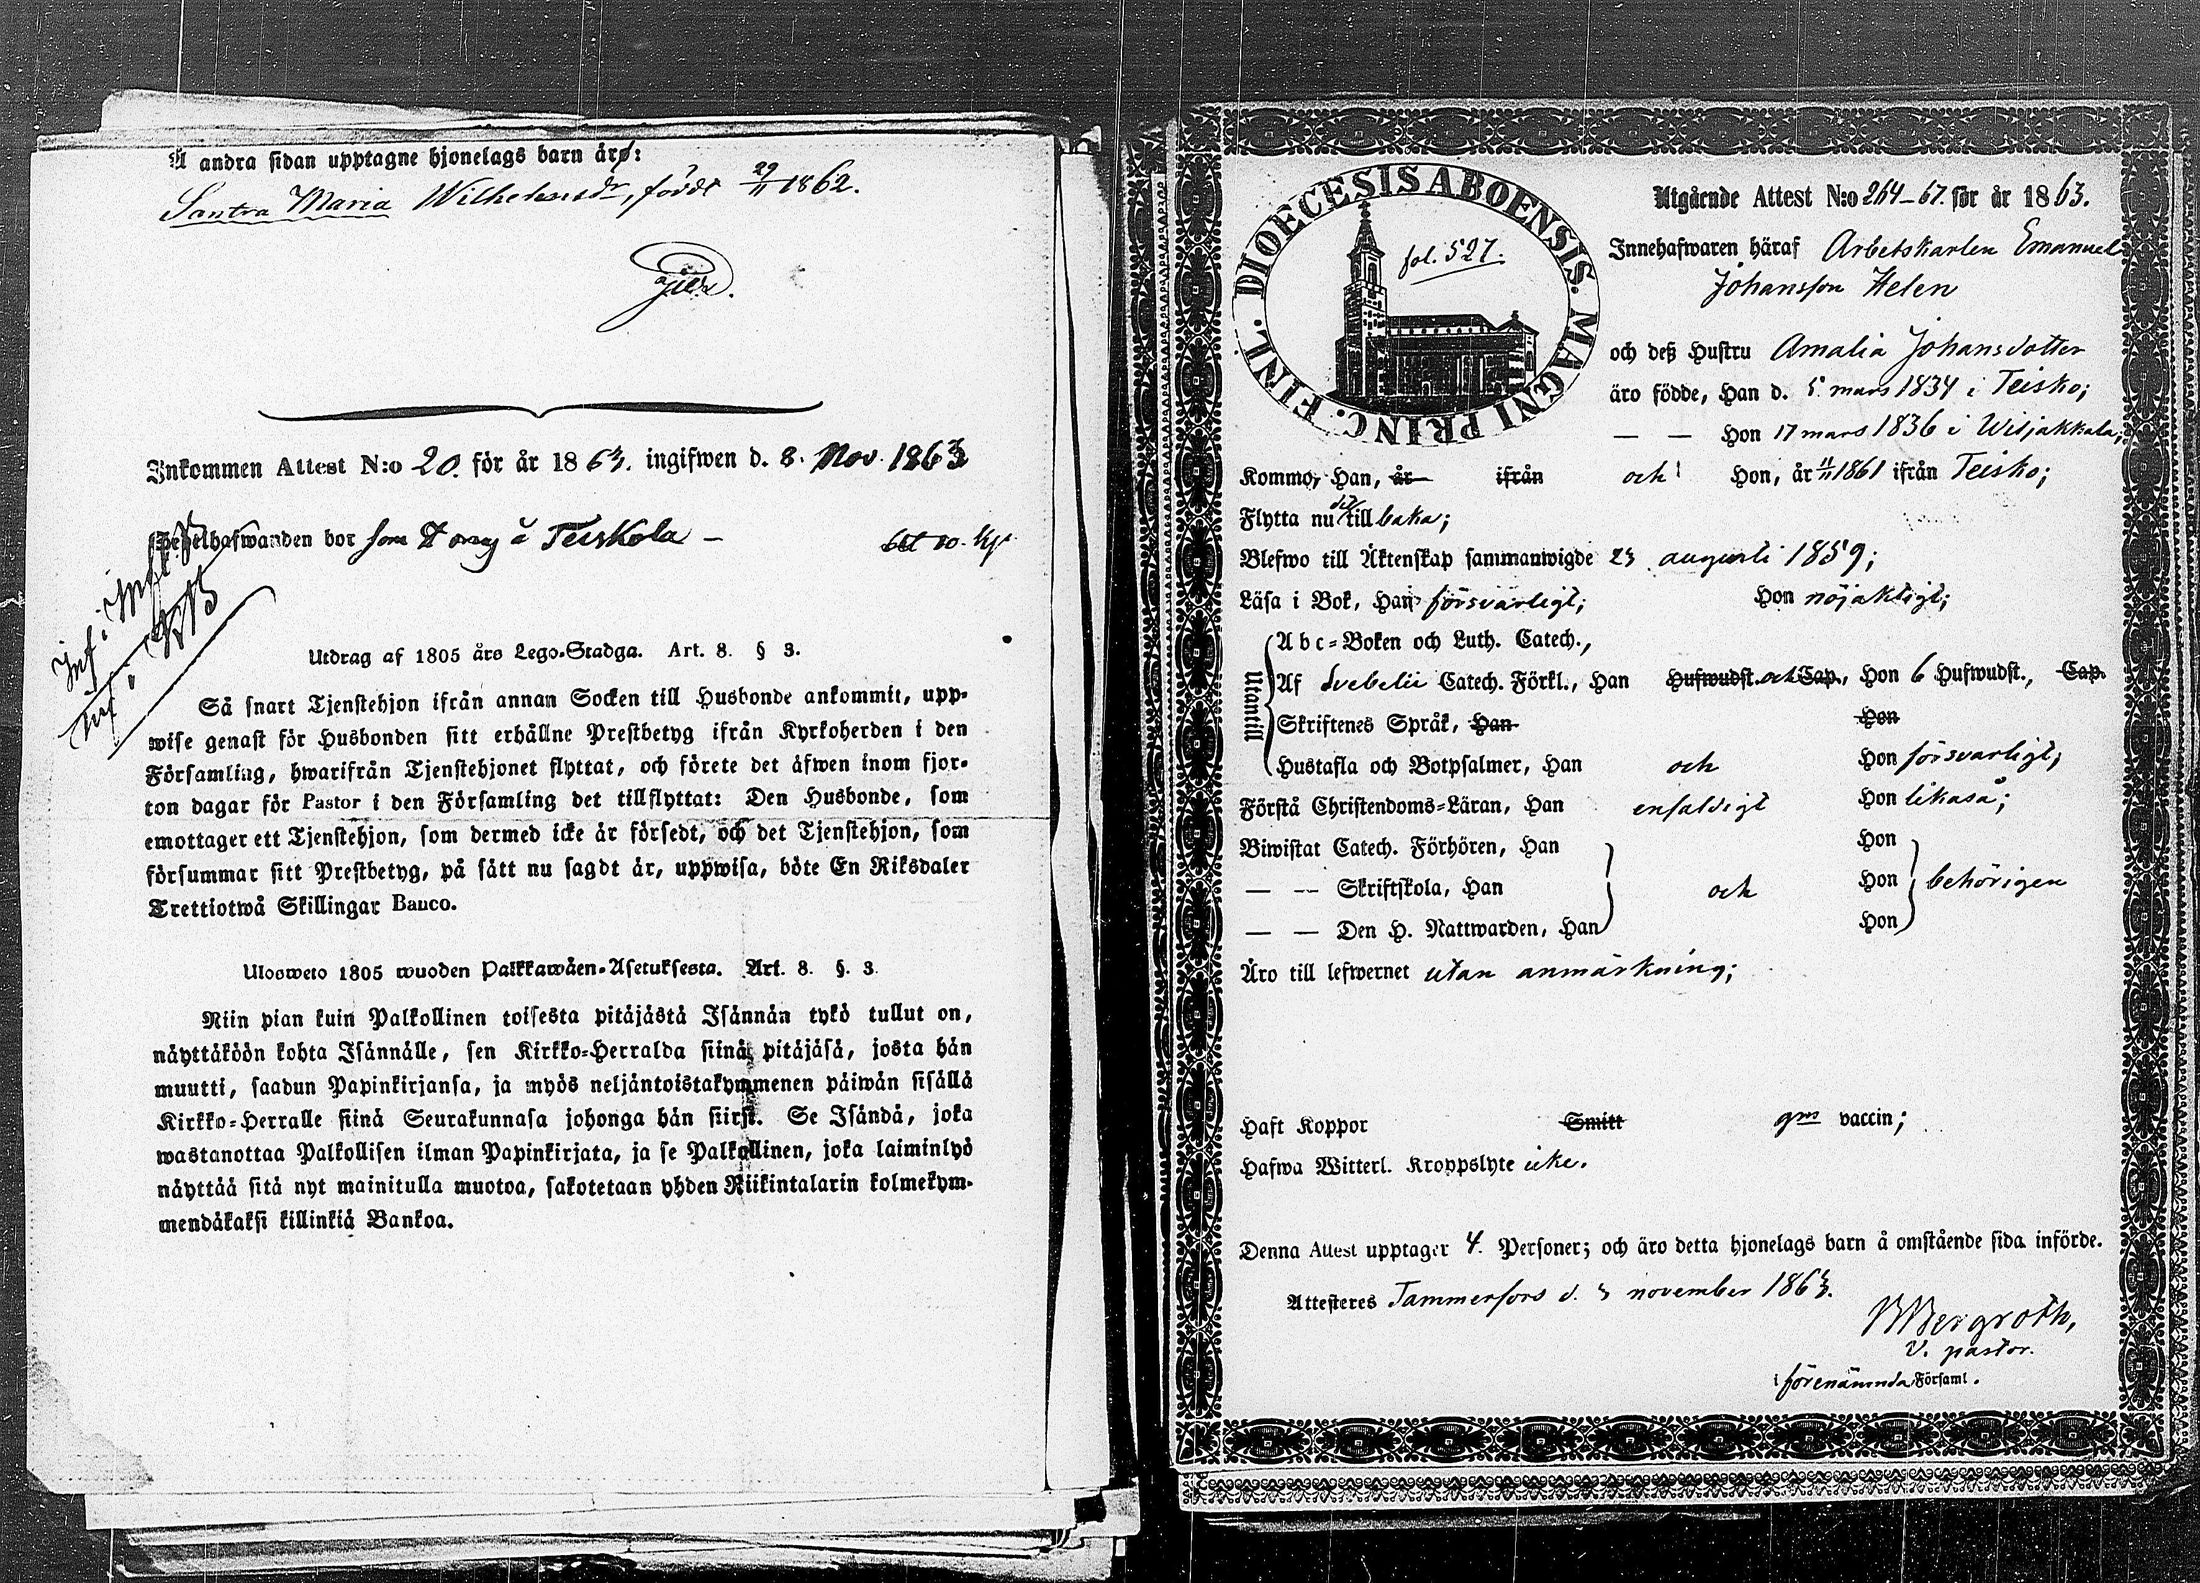 Å andra sidan upptagne hjonelags barn äro:
Santra Maria Wilhelmsdr, född 29/11 1862.
Inkommen Attest N:o 20. för år 1863. ingifwen d. 8. Nov. 1863
bor som å Teiskola –
Utdrag af 1805 års Lego-Stadga. Art. 8. § 3.
Så snart Tjenstehjon ifrån annan Socken till Husbonde ankommit, upp-
wise genast för Husbonden sitt erhållne Prestbetyg ifrån Kyrkoherden i den
Församling, hwarifrån Tjenstehjonet flyttat, och förete det äfwen inom fjor-
ton dagar för Pastor i den Församling det tillflyttat: Den Husbonde, som
emottager ett Tjenstehjon, som dermed icke är försedt, och det Tjenstehjon, som
försummar sitt Prestbetyg, på sätt nu sagdt är, uppwisa, böte En Riksdaler
Trettiotwå Skillingar Banco.
Ulosweto 1805 wuoden Palkkawäen-Asetuksesta. Art. 8. §. 3.
Niin pian kuin Palkollinen toisesta pitäjästä Isännän tykö tullut on,
näyttäköön kohta Isännälle, sen Kirkko-Herralda siinä pitäjäsä, josta hän
muutti, saadun Papinkirjansa, ja myös neljäntoistakymmenen päiwän sisällä
Kirkko-Herralle siinä Seurakunnasa johonga hän siirst. Se Isändä, joka
wastanottaa Palkollisen ilman Papinkirjata, ja se Palkollinen, joka laiminlyö
näyttää sitä nyt mainitulla muotoa, sakotetaan yhden Riikintalarin kolmekym-
mendäkaksi killinkiä Bankoa.
DIOECESIS ABOENSIS. MAGNI PRINC. FINL.
fol. 527.
Utgående Attest N:o 264–67. för år 1863.
Innehafwaren häraf Arbetskarlen Emanuel
Johansson Helen
och deß Hustru Amalia Johansdotter
äro födde, Han d. 5 mars 1834 i Teisko;
— — Hon 17 mars 1836 i Wiljakkala,
Kommo, Han, år ifrån och Hon, år 11/11 1861 ifrån Teisko;
Flytta nu dit tillbaka;
Blefwo till Äktenskap sammanwigde 23 augusti 1859;
Läsa i Bok, Han försvarligt; Hon nöjaktigt;
Utantill
Abc-Boken och Luth. Catech.,
Af Svebelii Catech. Förkl., Han Hufwudst. och Cap., Hon 6 Hufwudst., Cap.
Skriftenes Språk, Han Hon
Hustafla och Botpsalmer, Han och Hon försvarligt;
Förstå Christendoms-Läran, Han enfaldigt Hon likaså;
Biwistat Catech. Förhören, Han Hon
— — Skriftskola, Han och Hon behörigen
— — Den H. Nattwarden, Han Hon
Äro till lefwernet utan anmärkning;
Haft Koppor Smitt gm vaccin;
Hafwa Witterl. Kroppslyte icke.
Denna Attest upptager 4. Personer; och äro detta hjonelags barn å omstående sida införde.
Attesteres Tammerfors d. 3 november 1863.
Bergroth,
v. pastor.
i förenämnda Församl.